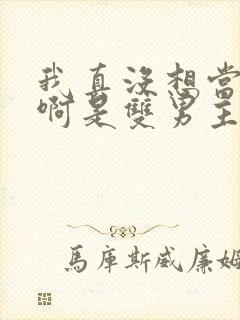 我真沒想當
啊是雙男主
馬庫斯威廉姆